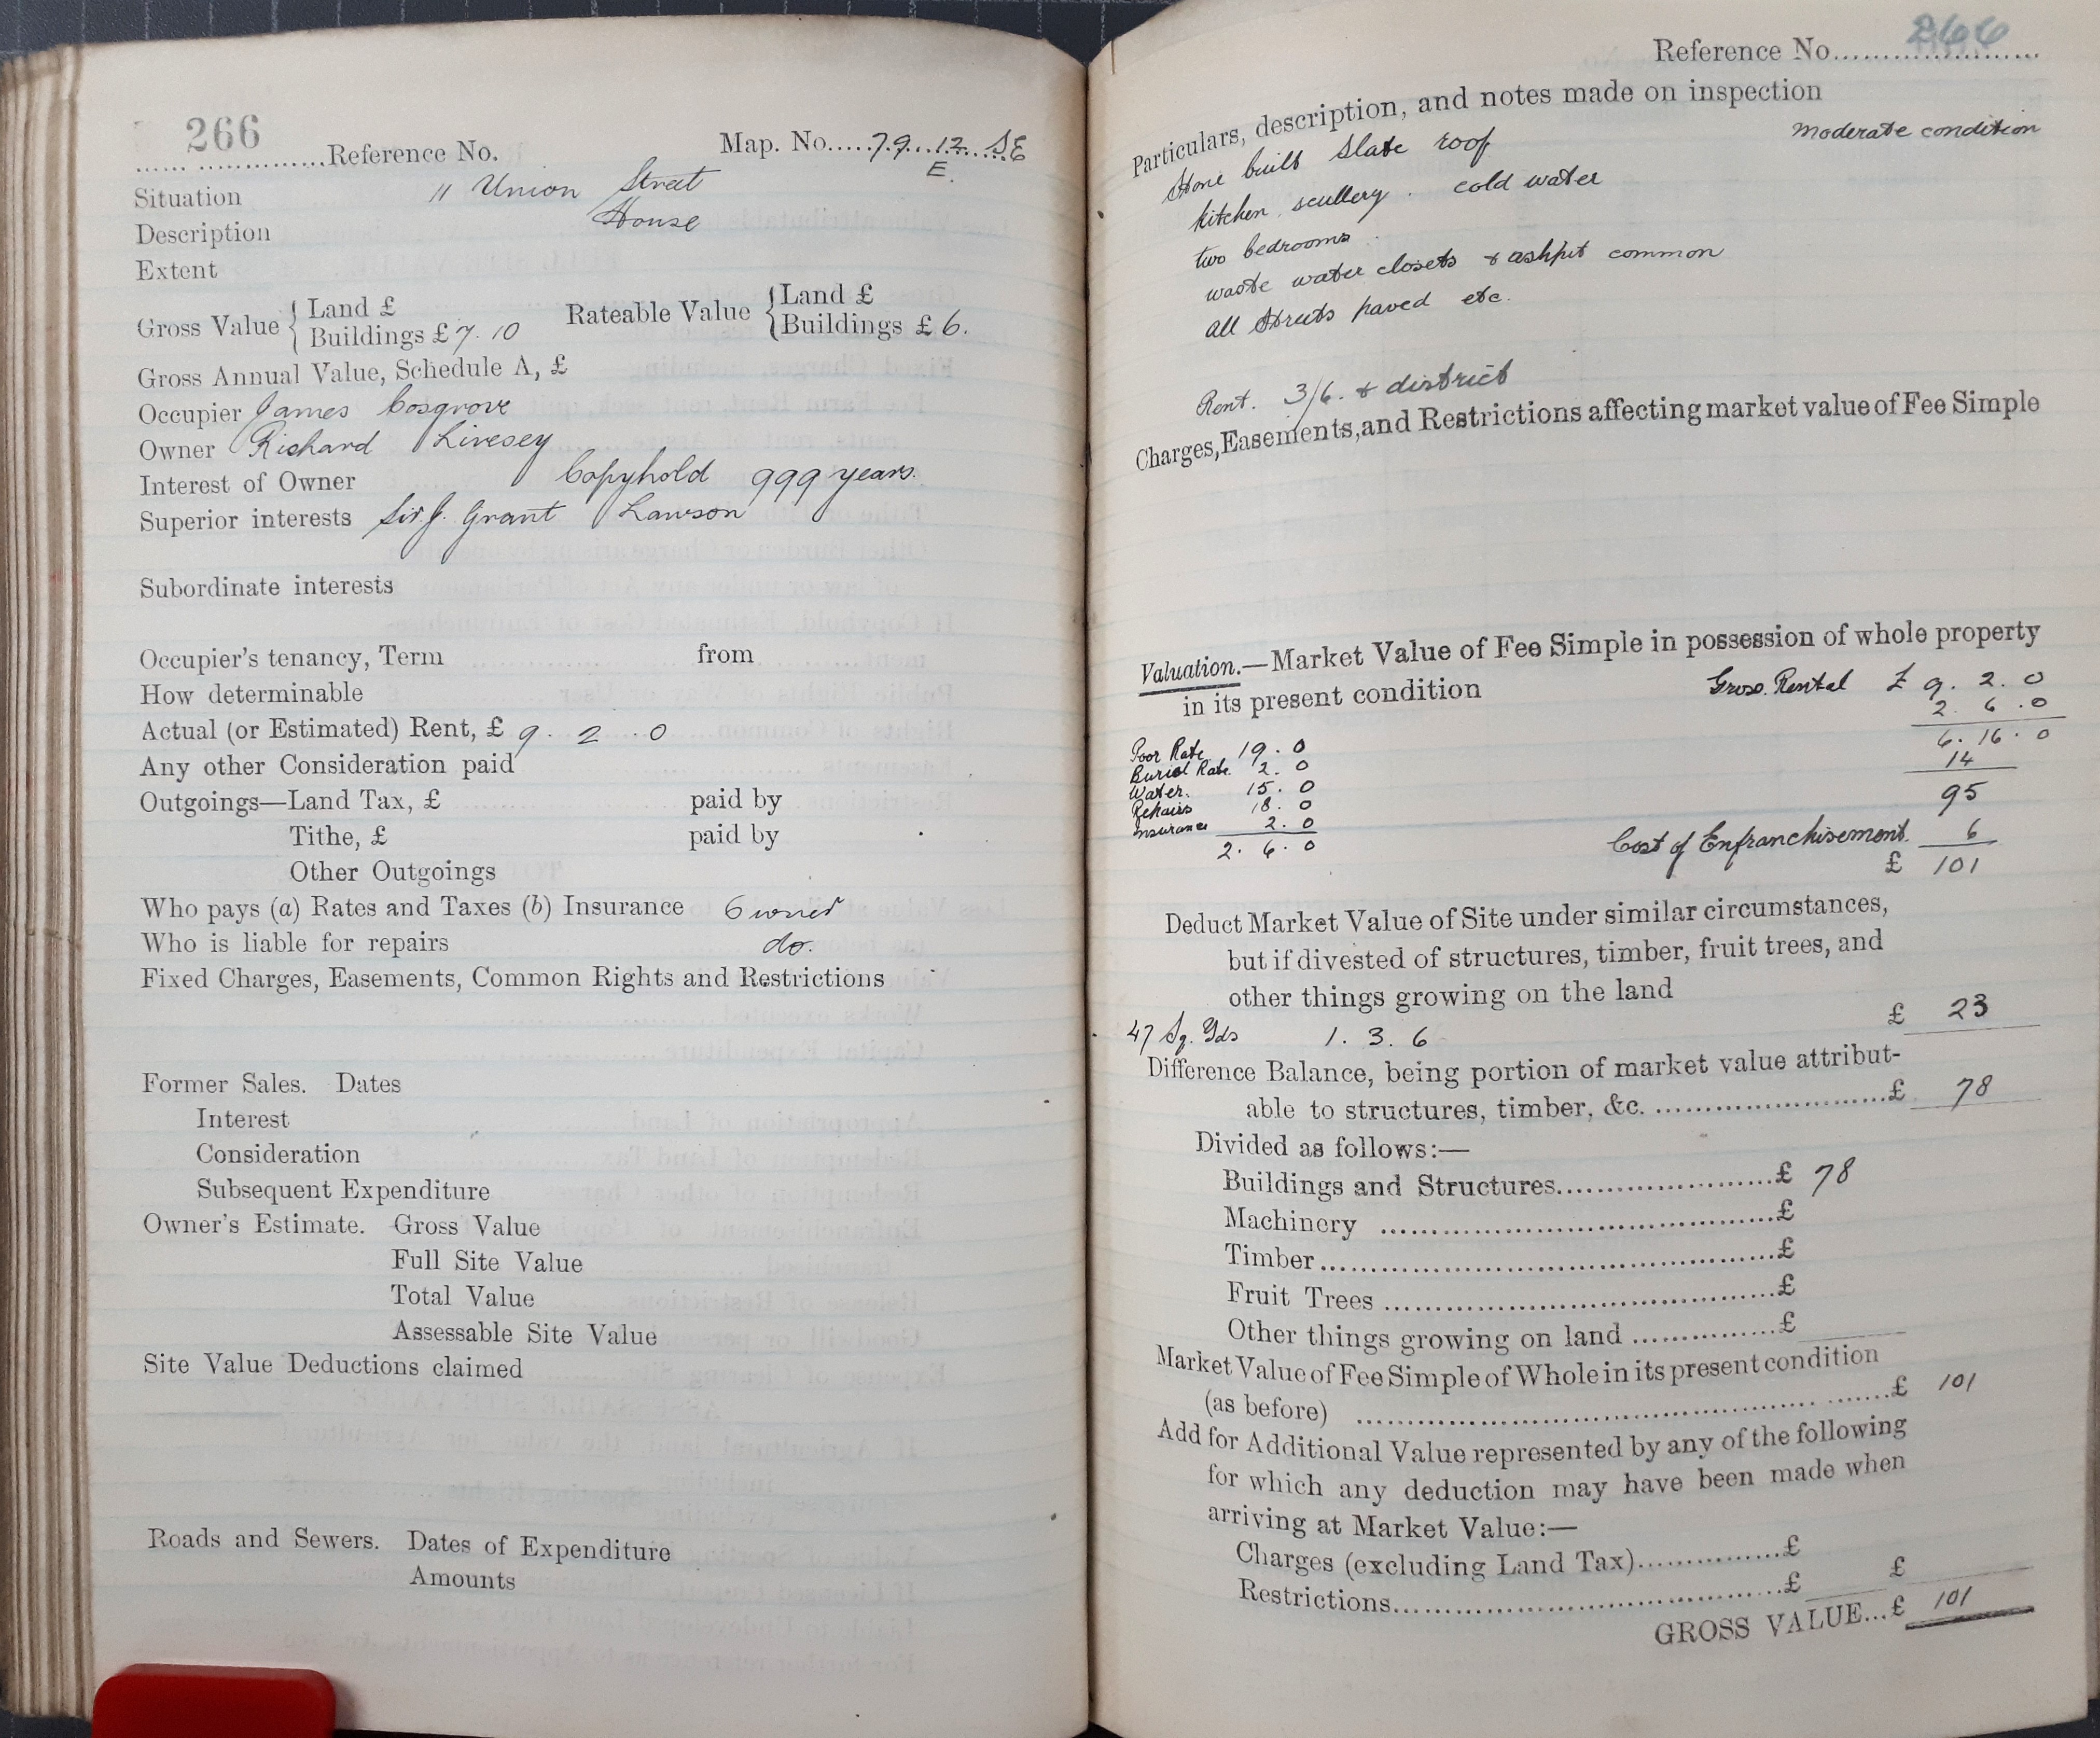 266
Reference No. Map. No. 79. 12. SE
E.
Situation 11 Union Street
Description House
Extent
Gross Value { Land £
Buildings £ 7. 10
Rateable Value { Land £
Buildings £ 6.
Gross Annual Value, Schedule A, £
Occupier James Cosgrove
Owner Richard Livesey
Interest of Owner Copyhold 999 years.
Superior interests Sir J. Grant Lawson
Subordinate interests
Occupier's tenancy, Term from
How determinable
Actual (or Estimated) Rent, £ 9. 2. 0
Any other Consideration paid
Outgoings—Land Tax, £ paid by
Tithe, £ paid by
Other Outgoings
Who pays (a) Rates and Taxes (b) Insurance Owner
Who is liable for repairs do.
Fixed Charges, Easements, Common Rights and Restrictions
Former Sales. Dates
Interest
Consideration
Subsequent Expenditure
Owner's Estimate. Gross Value
Full Site Value
Total Value
Assessable Site Value
Site Value Deductions claimed
Roads and Sewers. Dates of Expenditure
Amounts
Reference No. 266
Particulars, description, and notes made on inspection
Stone built Slate roof Moderate condition
kitchen, scullery. cold water
two bedrooms
waste water closets & ashpit common
all Streets paved etc.
Rent. 3/6. & district
Charges, Easements, and Restrictions affecting market value of Fee Simple
Valuation.—Market Value of Fee Simple in possession of whole property
in its present condition Gross. Rental £ 9. 2. 0
2. 6. 0
Poor Rate 19. 0 6. 16. 0
Burial Rate. 2. 0 14
Water. 15. 0 95
Repairs 18. 0
Insurance 2. 0 Cost of Enfranchisement. 6
2. 6. 0 £ 101
Deduct Market Value of Site under similar circumstances,
but if divested of structures, timber, fruit trees, and
other things growing on the land
47 Sq. Yds 1. 3. 6 £ 23
Difference Balance, being portion of market value attribut-
able to structures, timber, &c. £ 78
Divided as follows:—
Buildings and Structures £ 78
Machinery £
Timber £
Fruit Trees £
Other things growing on land £
Market Value of Fee Simple of Whole in its present condition
(as before) £ 101
Add for Additional Value represented by any of the following
for which any deduction may have been made when
arriving at Market Value:—
Charges (excluding Land Tax) £
Restrictions £ £
GROSS VALUE... £ 101